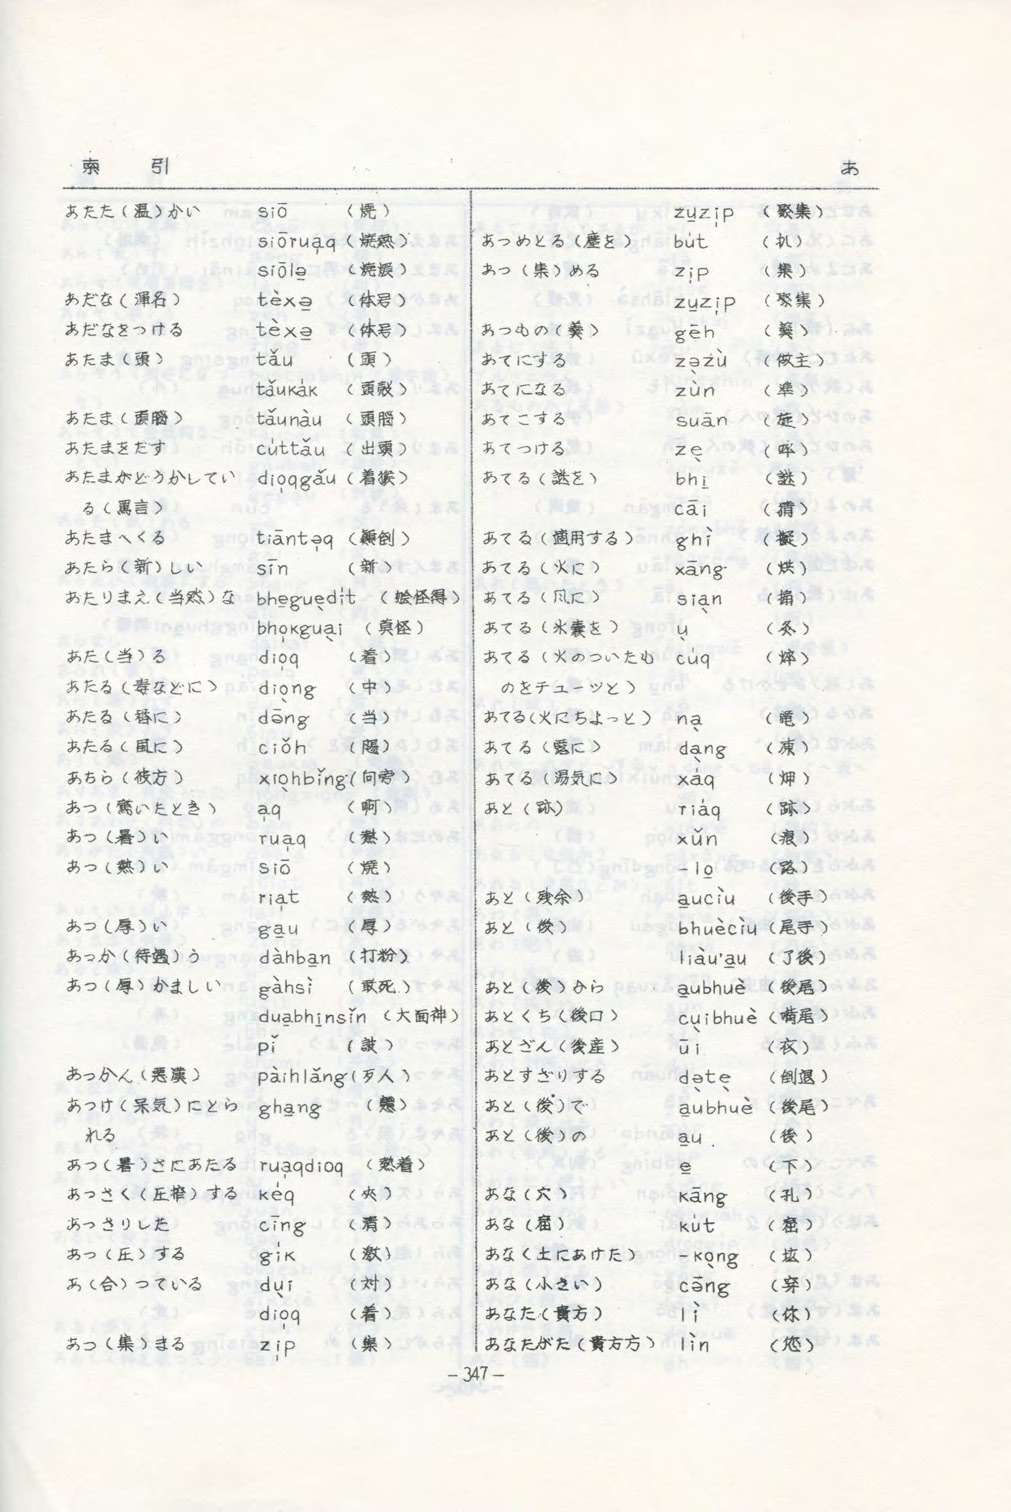 索 引 あ
あたた(温)かい siō (焼)
siōruaq (焼熱)
siōlə
あだな(渾名) tèxə (体号)
あだなをつける tèxə (体号)
あたま(頭) tǎu (頭)
tǎukak (頭殼)
あたま(頭脳) tǎunàu (頭脳)
あたまをだす cuttǎu (出頭)
あたまがどうかしてい dioqgǎu (着猴)
る(罵言)
あたまへくる tiāntəq (顚倒)
あたら(新)しい sīn (新)
あたりまえ(当然)な bheguedit (怪得)
bhokguai (莫怪)
あた(当)る dioq (着)
あたる(毒などに) diong (中)
あたる(番に) dāng (当)
あたる(風に) ciǒh
あちら(彼方) xiohbǐng (向旁)
あつ(驚いたとき) aq (啊)
あつ(暑)い ruaq (熱)
あつ(熱)い siō (焼)
riat (熱)
あつ(厚)い gau (厚)
あっか(待遇)う dàhban (打粉)
あつ(厚)かましい gàhsì (敢死)
duabhinsǐn (大面神)
pǐ
あっかん(悪漢) pàihlǎng (歹人)
あっけ(呆気)にとら ghang
れる
あつ(暑)さにあたる ruaqdioq (熱着)
あっさく(圧搾)する keq (夾)
あっさりした cīng (清)
あつ(圧)する gik (激)
あ(合)っている dui (対)
dioq (着)
あつ(集)まる zip (集)
zuzip (聚集)
あつめとる(塵を) but (扒)
あつ(集)める zip (集)
zuzip (聚集)
あつもの(羹) gēh (羹)
あてにする zəzù (做主)
あてになる zùn (準)
あてこする suān (旋)
あてつける ze
あてる(謎を) bhi (謎)
cāi (猜)
あてる(適用する) ghì (擬)
あてる(火に) xāng (烘)
あてる(風に) sian (搧)
あてる(氷嚢を) u
あてる(火のついたも cuq (焠)
のをチューッと)
あてる(火にちょっと) na
あてる(寒に) dang (凍)
あてる(湯気に) xaq
あと(跡) riaq (跡)
xǔn (痕)
-lo (路)
あと(残余) auciu (後手)
あと(後) bhuèciu (尾手)
liàu'au (了後)
あと(後)から aubhuè (後尾)
あとくち(後口) cuibhuè (嘴尾)
あとざん(後産) ūi (衣)
あとすざりする dəte (倒退)
あと(後)で aubhuè (後尾)
あと(後)の au (後)
e (下)
あな(穴) kāng (孔)
あな(窟) kut (窟)
あな(土にあけた) -kong
あな(小さい) cəng (穿)
あなた(貴方) lì (你)
あなたがた(貴方方) lìn (恁)
- 347 -